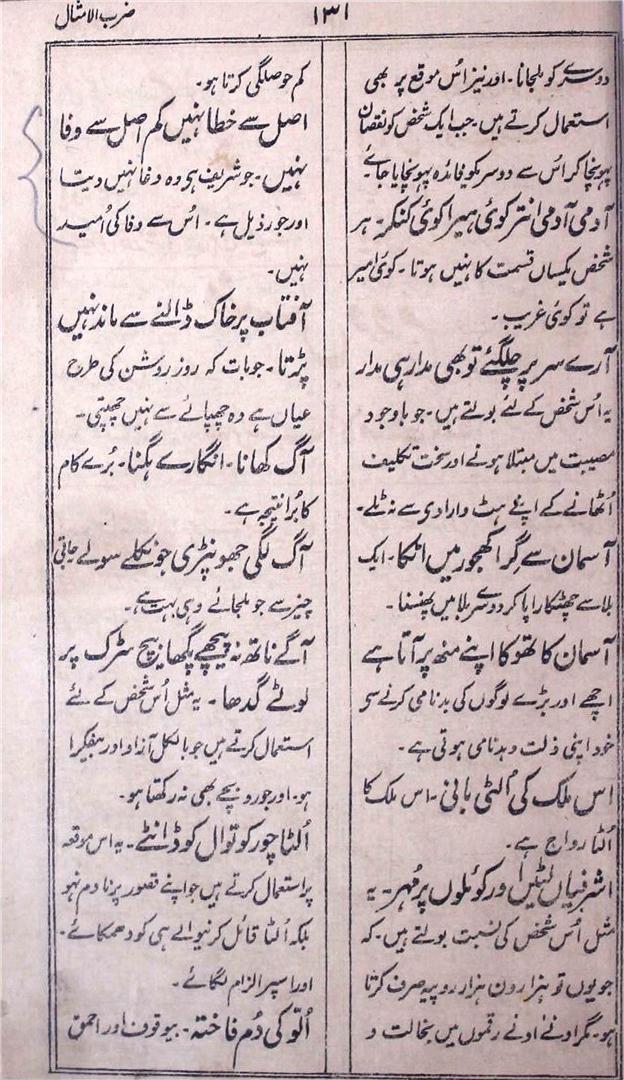 ضرب الامثال
۱۳۱
دوسرے کو ملجانا۔ اور نیز اُس موقع پر بھی
استعمال کرتے ہیں۔ جب ایک شخص کو نقصان
پہونچا کر اُس سے دوسر کو فائدہ پہونچایا جائے
آدمی آدمی انتر کوئی ہیرا کوئی کنکر۔ ہر
شخص یکساں قسمت کا نہیں ہوتا۔ کوئی امیر
ہے تو کوئی غریب۔
آرے سر پر چلگئے تو بھی مدار ہی مدار
یہ اُس شخص کے لئے بولتے ہیں۔ جو باوجود
مصیبت میں مبتلا ہونے اور سخت تکلیف
اُٹھانے کے اپنے ہٹ وارادی سے نہ ٹلے۔
آسمان سے گرا کھجور میں اٹکا۔ ایک
بلا سے چھٹکارا پا کر دوسرے بلا میں پھنسنا۔
آسمان کا تھوکا اپنے منھ پر آتا ہے
اچھے اور بڑے لوگوں کی بدنامی کرنے سی
خود اپنی ذلت و بدنامی ہوتی ہے۔
اس ملک کی اُلٹی بانی۔ اس ملک کا
اُلٹا رواج ہے۔
اشرفیاں لٹیں اور کوئلوں پر مُہر۔ یہ
مثل اُس شخص کی نسبت بولتے ہیں۔ کہ
جو یوں تو ہزارون ہزار روپیہ صرف کرتا
ہو۔ مگر ادنے ادنے رقموں میں بخالت و
کم حوصلگی کرتا ہو۔
اصل سے خطا نہیں کم اصل سے وفا
نہیں۔ جو شریف ہی وہ دغا نہیں دیتا
اور جو رذیل ہے۔ اُس سے وفا کی اُمید
نہیں۔
آفتاب پر خاک ڈالنے سے ماند نہیں
پڑتا۔ جو بات کہ روز روشن کی طرح
عیاں ہے وہ چھپائے سے نہیں چھپتی۔
آگ کھانا۔ انگارے ہگنا۔ بُرے کام
کا بُرا نتیجہ ہے۔
آگ لگی جھونپڑی جو نکلے سو لے جاتی
چیز سے جو ملجائے وہی بہت ہے۔
آگے ناتھ نہ پیچھے پگھا۔ بیچ سڑک پر
لوٹے گدھا۔ یہ مثل اُس شخص کے لئے
استعمال کرتے ہیں جو بالکل آزاد اور بیفکرا
ہو۔ اور جورو بچے بھی نہ رکھتا ہو۔
اُلٹا چور کوتوال کو ڈانٹے۔ یہ اس موقعہ
پر استعمال کرتے ہیں جو اپنے قصور پر نادم نہو
بلکہ اُلٹا قائل کرنیوالے ہی کو دھمکائے۔
اور اسپر الزام لگائے۔
اُلّو کی دُم فاختہ۔ بیوقوف اور احمق